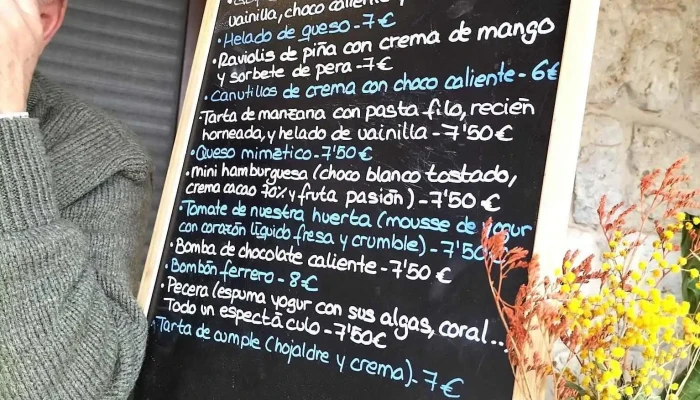 vainilla, choco caliente y
• Helado de queso - 7€
• Raviolis de piña con crema de mango
y sorbete de pera - 7€
• Canutillos de crema con choco caliente - 6€
- Tarta de manzana con pasta filo, recién
horneada, y helado de vainilla - 7'50 €
• Queso mimético - 7'50 €
• mini hamburguesa (choco blanco tostado,
crema cacao 70% y fruta pasión) - 7'50 €
• Tomate de nuestra huerta (mousse de yogur
con corazón líquido fresa y crumble) - 7'50€
• Bomba de chocolate caliente - 7'50 €
• Bombón ferrero - 8€
• Pecera (espuma yogur con sus algas, coral...
Todo un espectáculo - 7'50€
• Tarta de cumple (hojaldre y crema) - 7 €